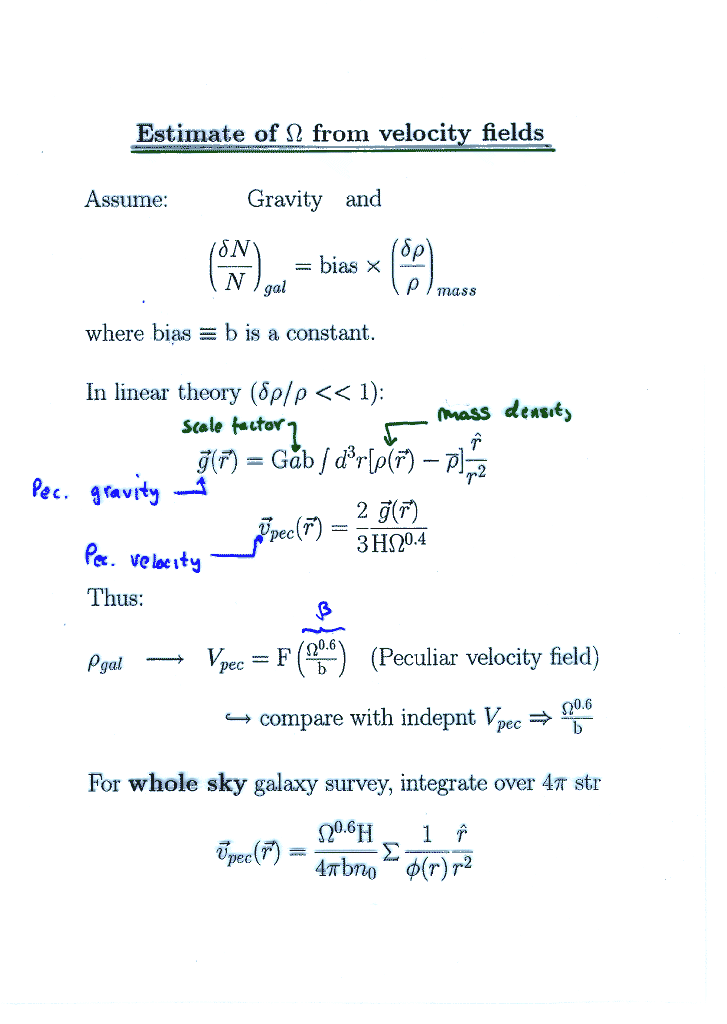 Estimate of Ω from velocity fields
Assume: Gravity and
(δN/N)_gal = bias × (δρ/ρ)_mass
where bias ≡ b is a constant.
In linear theory (δρ/ρ << 1):
Scale factor
mass density
g⃗(r⃗) = Gab ∫ d³r[ρ(r⃗) − ρ̅] r̂/r²
Pec. gravity
v⃗_pec(r⃗) = 2 g⃗(r⃗) / 3 HΩ^0.4
Pec. velocity
Thus:
β
ρ_gal ⟶ V_pec = F (Ω^0.6/b) (Peculiar velocity field)
↪ compare with indepnt V_pec ⇒ Ω^0.6/b
For whole sky galaxy survey, integrate over 4π str
v⃗_pec(r⃗) = Ω^0.6H/4πbn₀ Σ 1/ϕ(r) r̂/r²